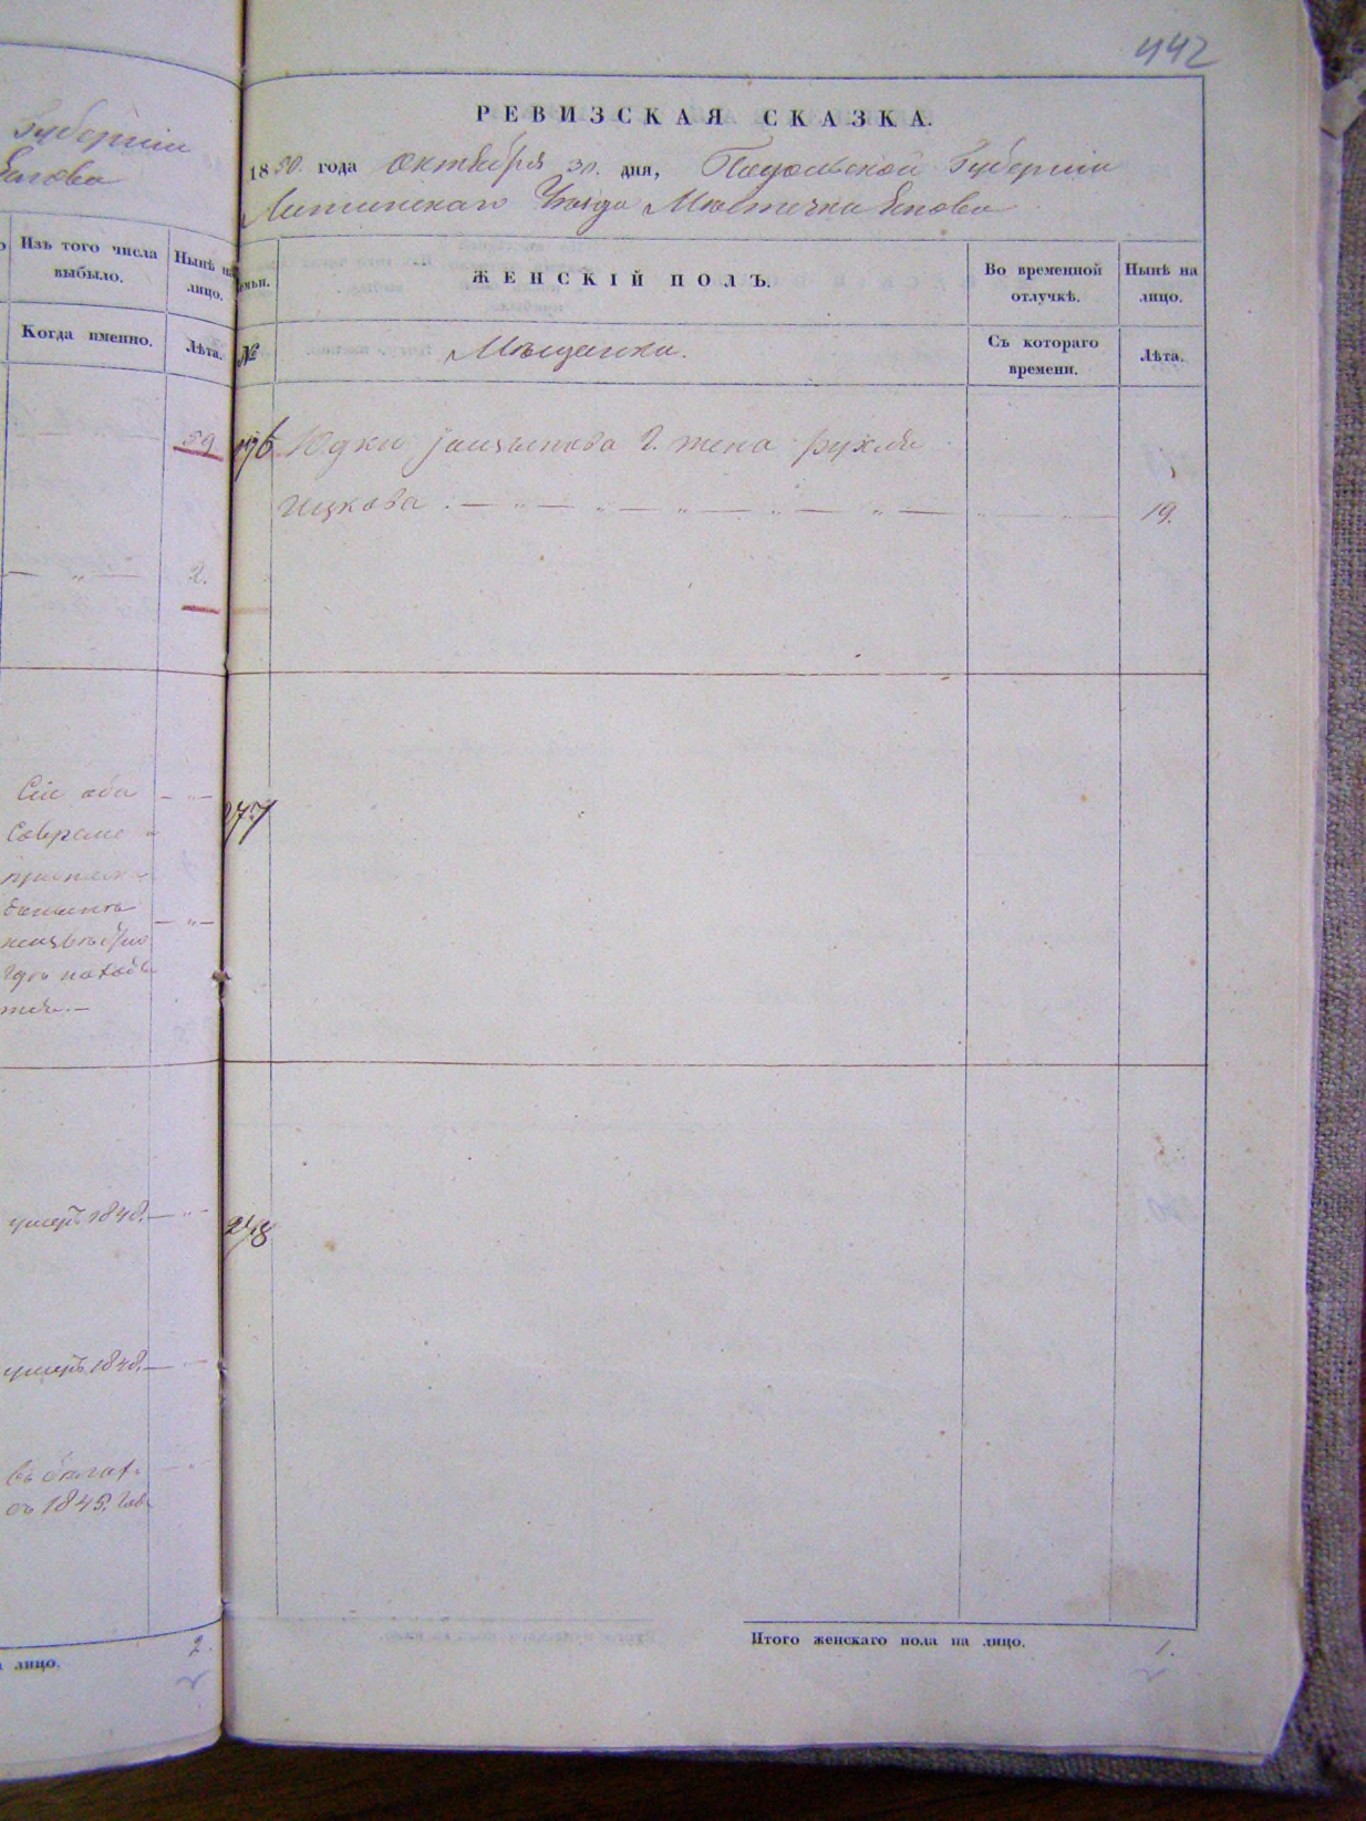 Губерніи
Янова
Изъ того числа
выбыло.
Нынѣ на
лицо.
Когда именно.
Лѣта.
59
2.
Сіи оба
неизвѣстно
гдѣ находя
тся.—
умеръ 1848.—
умеръ 1848.—
съ 1845. года
лицо.
2.
442
РЕВИЗСКАЯ СКАЗКА.
1850. года Октября 30. дня, Подольской Губерніи
Литинскаго Уѣзда Мѣстечка Янова
семьи.
ЖЕНСКІЙ ПОЛЪ.
Во временной
отлучкѣ.
Нынѣ на
лицо.
№
Мѣщанки.
Съ котораго
времени.
Лѣта.
276 Юдки 2. жена Рухля
Ицкова 19.
277
278
Итого женскаго пола на лицо. 1.